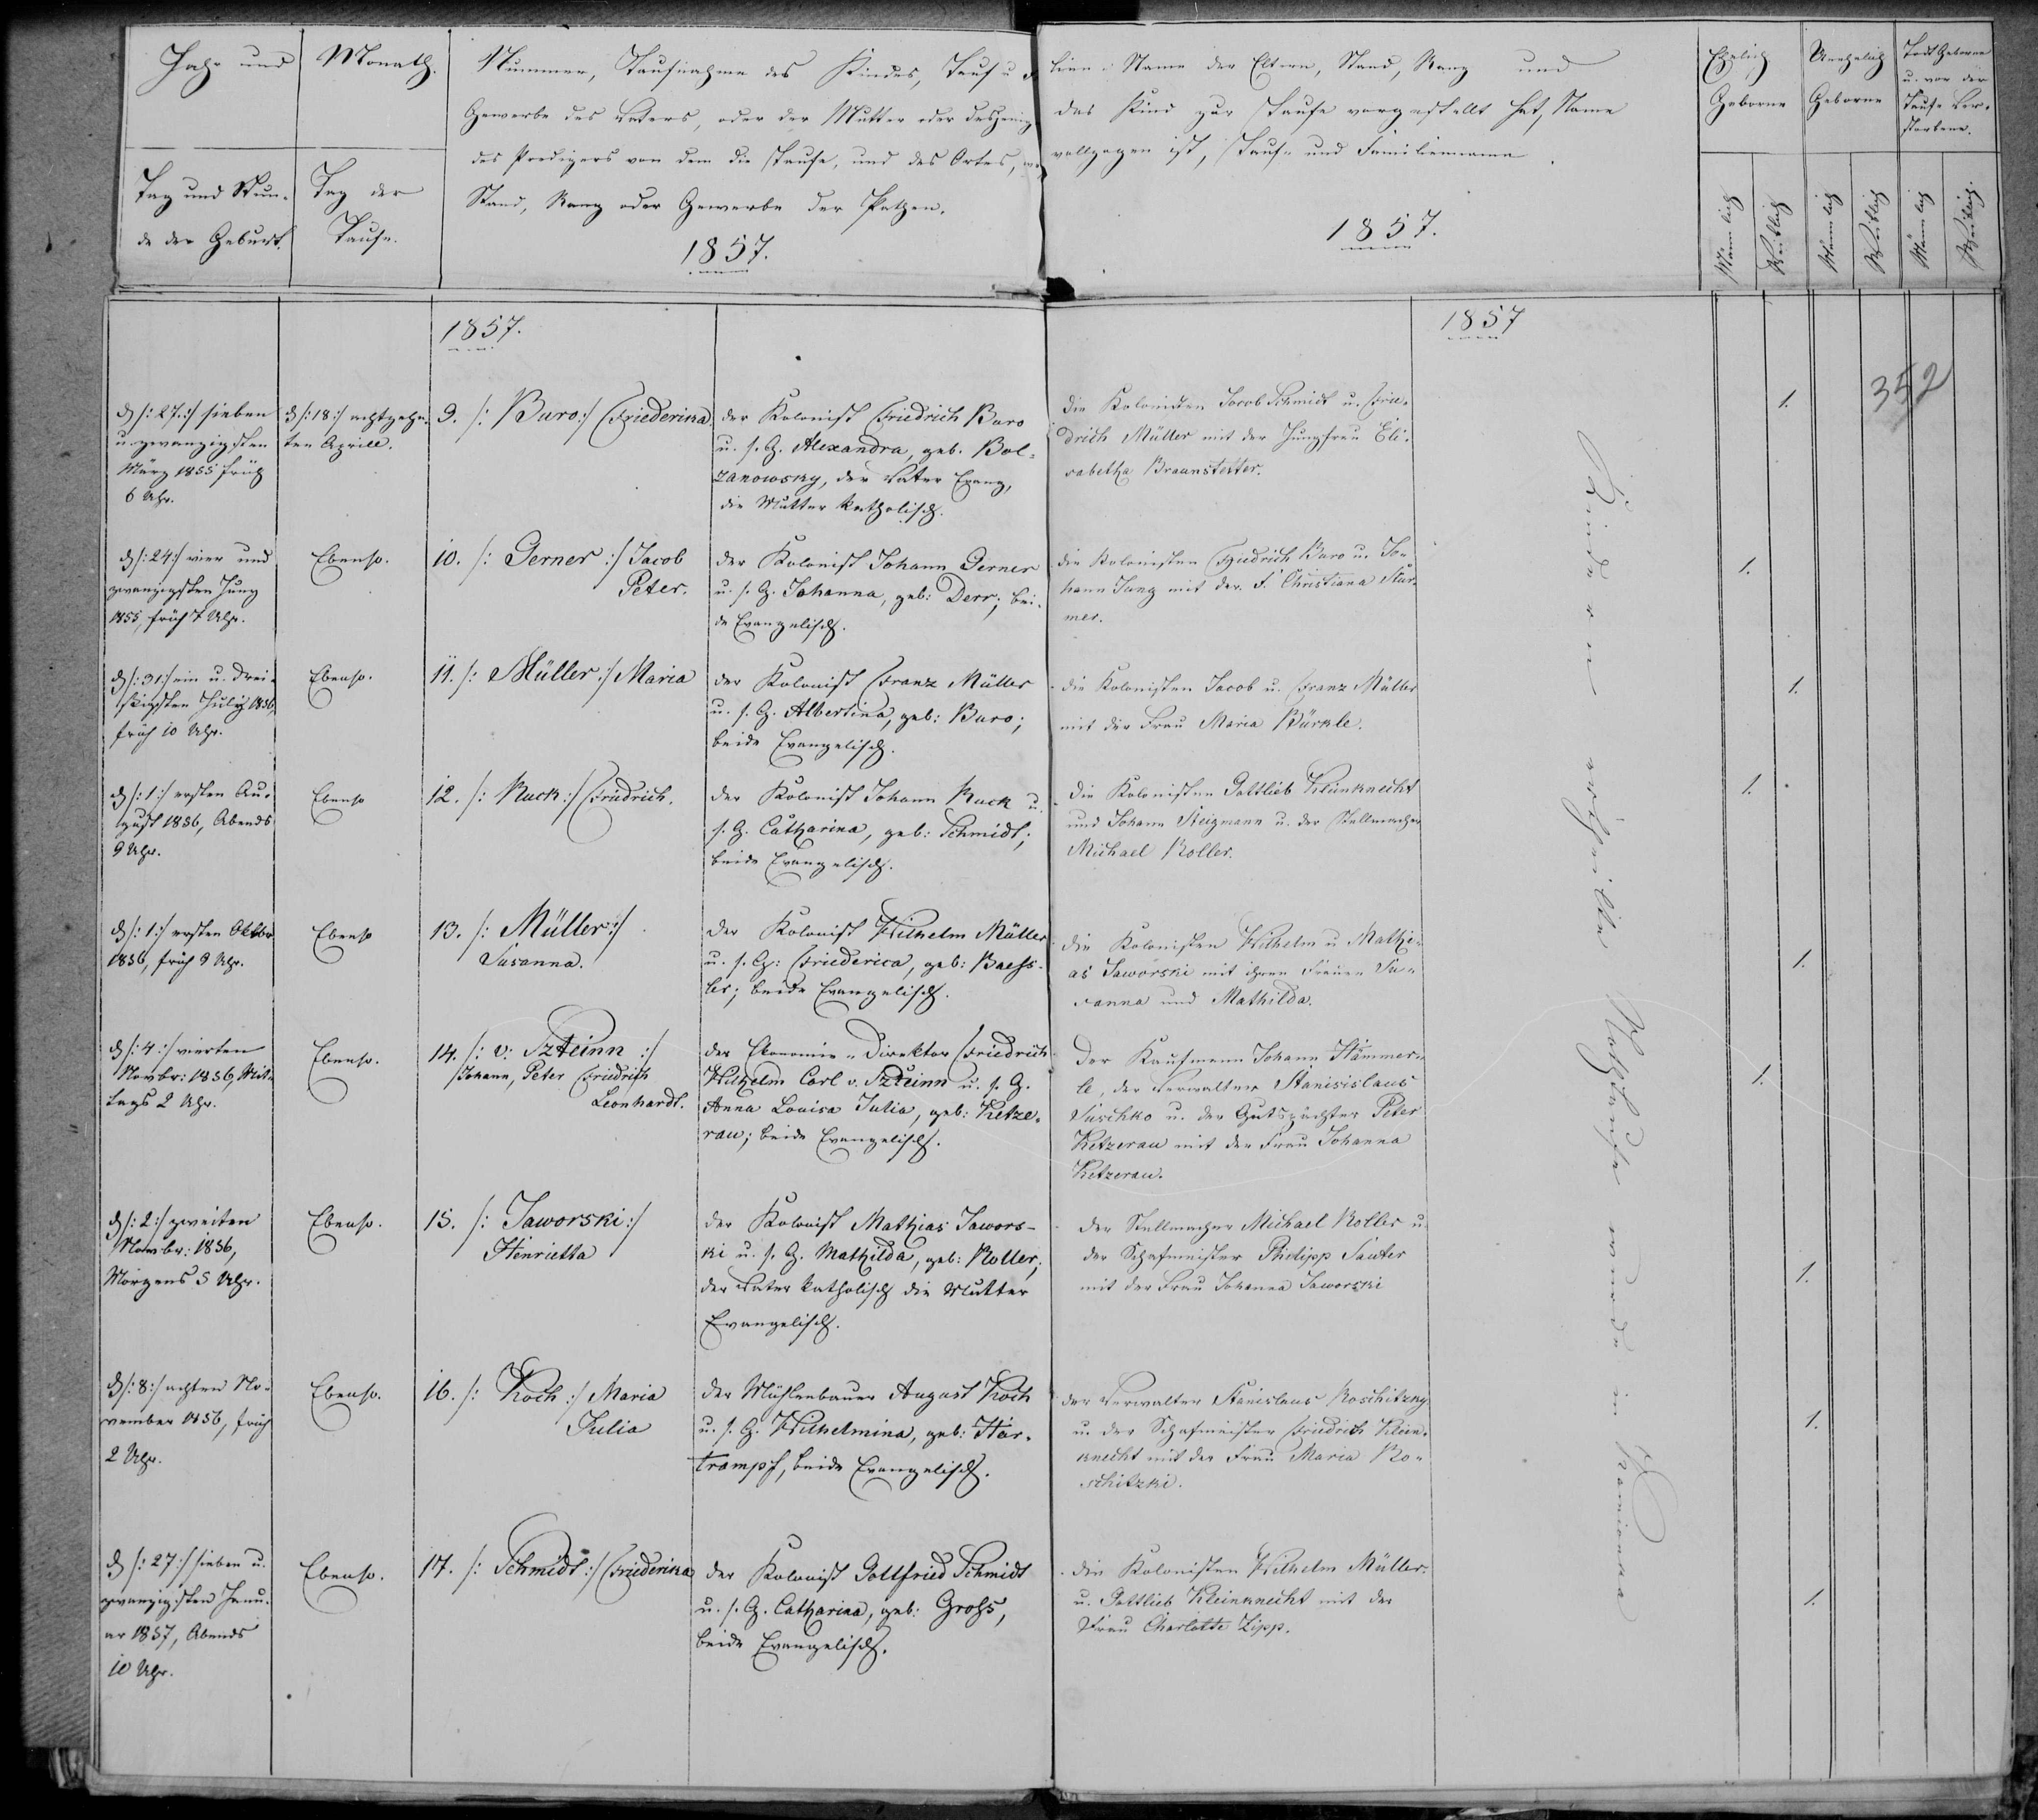 Jahr und
Monath.
Tag und Stun-
de der Geburt.
Tag der
Taufe.
Nummer, Taufnahme des Kindes, Tauf u.
Gewerbe des Vaters, oder der Mutter oder desjenig
des Predigers von dem die Taufe, und des Ortes, wo
Stand, Rang oder Gewerbe der Pathen.
1857.
lien: Name der Eltern, Stand, Rang und
das Kind zur Taufe vorgestellt hat, Name
vollzogen ist, Tauf- und Familienname
1857.
Ehelich
Geborne
Unehelich
Geborne
Todt Geborne
u. vor der
Taufe Ver-
storbene.
Männlich
Weiblich
Männlich
Weiblich
Männlich
Weiblich
1857.
1857
352
d /: 27. :/ sieben
u. zwanzigsten
März 1855 früh
6 Uhr.
d /: 18 :/ achtzehn-
ten Aprill.
9. /: Buro :/ Friederika
der Kolonist Friedrich Buro
u. s. G. Alexandra, geb. Bol-
zanowsky, der Vater Evang,
die Mutter katholisch.
die Kolonisten Jacob Schmidt u. Frie-
drich Müller mit der Jungfrau Eli-
sabetha Braunstetter.
1.
d /: 24 :/ vier und
zwanzigsten Juny
1855, früh 7 Uhr.
Ebenso.
10. /: Gerner :/ Jacob
Peter.
der Kolonist Johann Gerner
u. s. G. Johanna, geb: Derr; bei-
de Evangelisch.
die Kolonisten Friedrich Buro u. Jo-
hann Jung mit der F. Christiana Stür-
mer.
1.
d /: 31 :/ ein u. drei-
ßigsten July 1856,
früh 10 Uhr.
Ebenso.
11. /: Müller :/ Maria
der Kolonist Franz Müller
u. s. G. Albertina, geb: Buro;
beide Evangelisch.
die Kolonisten Jacob u. Franz Müller
mit der Frau Maria Bürkle.
1.
d /: 1 :/ ersten Au-
gust 1856, Abends
9 Uhr.
Ebenso
12. /: Ruck :/ Friedrich.
der Kolonist Johann Ruck u.
s. G. Catharina, geb: Schmidt;
beide Evangelisch.
die Kolonisten Gottlieb Kleinknecht
und Johann Steigmann u. der Stellmacher
Michael Koller.
1.
d /: 1 :/ ersten Oktbr
1856, früh 9 Uhr.
Ebenso
13. /: Müller :/
Susanna.
der Kolonist Wilhelm Müller
u. s. G: Friederica, geb: Baess-
ler; beide Evangelisch.
die Kolonisten Wilhelm u Mathi-
as Jaworski mit ihren Frauen Su-
sanna und Mathilda.
1.
d /: 4 :/ vierten
Novbr: 1856, Mit-
tags 2 Uhr.
Ebenso.
14. /: v: Szteinn :/
Johann, Peter Friedrich
Leonhardt.
der Ekonomie-Direktor Friedrich
Wilhelm Carl v. Szteinn u. s. G.
Anna Louisa Julia, geb: Ketze-
rau; beide Evangelisch.
der Kaufmann Johann Hämmer-
le, der Verwalter Stanisislaus
Suschko u. der Gutspächter Peter
Ketzerau mit der Frau Johanna
Ketzerau.
1.
d /: 2 :/ zweiten
Novbr: 1856,
Morgens 5 Uhr.
Ebenso.
15. /: Jaworski :/
Henrietta
der Kolonist Mathias Jawors-
ki u. s. G. Mathilda, geb: Koller;
der Vater katholisch die Mutter
Evangelisch.
der Stellmacher Michael Koller u.
der Schafmeister Philipp Sauter
mit der Frau Johanna Jaworski
1.
d /: 8 :/ achten No-
vember 1856, früh
2 Uhr.
Ebenso.
16. /: Koch :/ Maria
Julia
der Mühlenbauer August Koch
u. s. G. Wilhelmina, geb: Har-
trampf, beide Evangelisch.
der Verwalter Stanislaus Koschitzky
u. der Schafmeister Friedrich Klein-
knecht mit der Frau Maria Ko-
schitzki.
1.
d /: 27 :/ sieben u.
zwanzigsten Janu-
ar 1857, Abends
10 Uhr.
Ebenso.
17. /: Schmidt :/ Friederika
der Kolonist Gottfried Schmidt
u. s. G. Catharina, geb: Gross,
beide Evangelisch.
die Kolonisten Wilhelm Müller
u. Gottlieb Kleinknecht mit der
Frau Charlotte Zipp.
1.